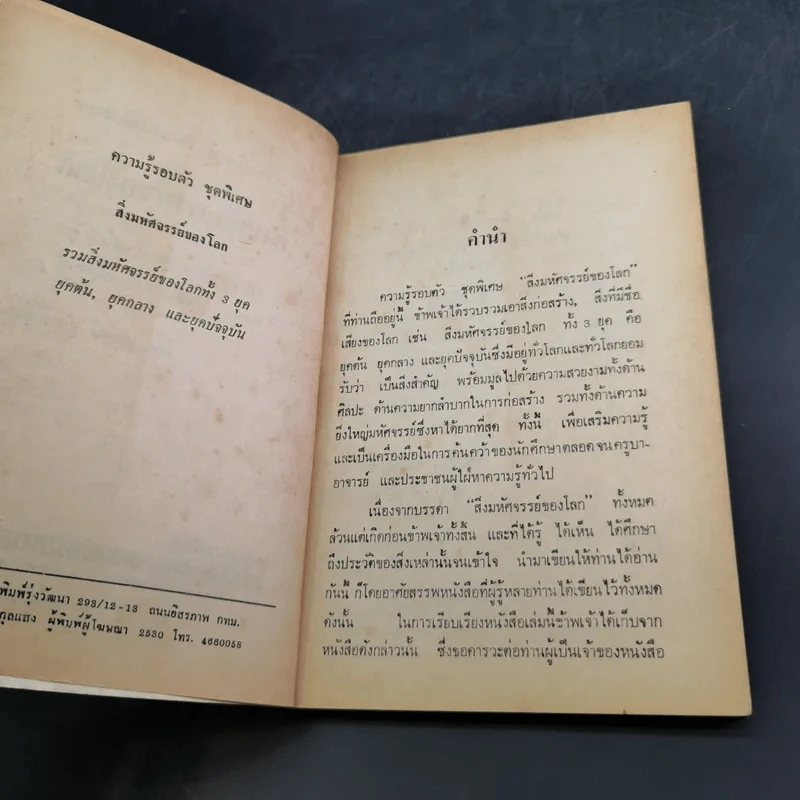 ความรู้รอบตัว ชุดพิเศษ
สิ่งมหัศจรรย์ของโลก
รวมสิ่งมหัศจรรย์ของโลกทั้ง 3 ยุค
ยุคต้น, ยุคกลาง และยุคปัจจุบัน
พิมพ์รุ่งวัฒนา 293/12-13 ถนนอิสรภาพ กทม.
กุลแถง ผู้พิมพ์ผู้โฆษณา 2530 โทร. 4660058
คำนำ
ความรู้รอบตัว ชุดพิเศษ “สิ่งมหัศจรรย์ของโลก”
ที่ท่านถืออยู่นี้ ข้าพเจ้าได้รวบรวมเอาสิ่งก่อสร้าง, สิ่งที่มีชื่อ
เสียงของโลก เช่น สิ่งมหัศจรรย์ของโลก ทั้ง 3 ยุค คือ
ยุคต้น ยุคกลาง และยุคปัจจุบันซึ่งมีอยู่ทั่วโลกและทั่วโลกยอม
รับว่า เป็นสิ่งสำคัญ พร้อมมูลไปด้วยความสวยงามทั้งด้าน
ศิลปะ ด้านความยากลำบากในการก่อสร้าง รวมทั้งด้านความ
ยิ่งใหญ่มหัศจรรย์ซึ่งหาได้ยากที่สุด ทั้งนี้ เพื่อเสริมความรู้
และเป็นเครื่องมือในการค้นคว้าของนักศึกษาตลอดจนครูบา-
อาจารย์ และประชาชนผู้ใฝ่หาความรู้ทั่วไป
เนื่องจากบรรดา “สิ่งมหัศจรรย์ของโลก” ทั้งหมด
ล้วนแต่เกิดก่อนข้าพเจ้าทั้งสิ้น และที่ได้รู้ ได้เห็น ได้ศึกษา
ถึงประวัติของสิ่งเหล่านั้นจนเข้าใจ นำมาเขียนให้ท่านได้อ่าน
กันนี้ ก็โดยอาศัยสรรพหนังสือที่ผู้รู้หลายท่านได้เขียนไว้ทั้งหมด
ดังนั้น ในการเรียบเรียงหนังสือเล่มนี้ข้าพเจ้าได้เก็บจาก
หนังสือดังกล่าวนั้น ซึ่งขอคารวะต่อท่านผู้เป็นเจ้าของหนังสือ